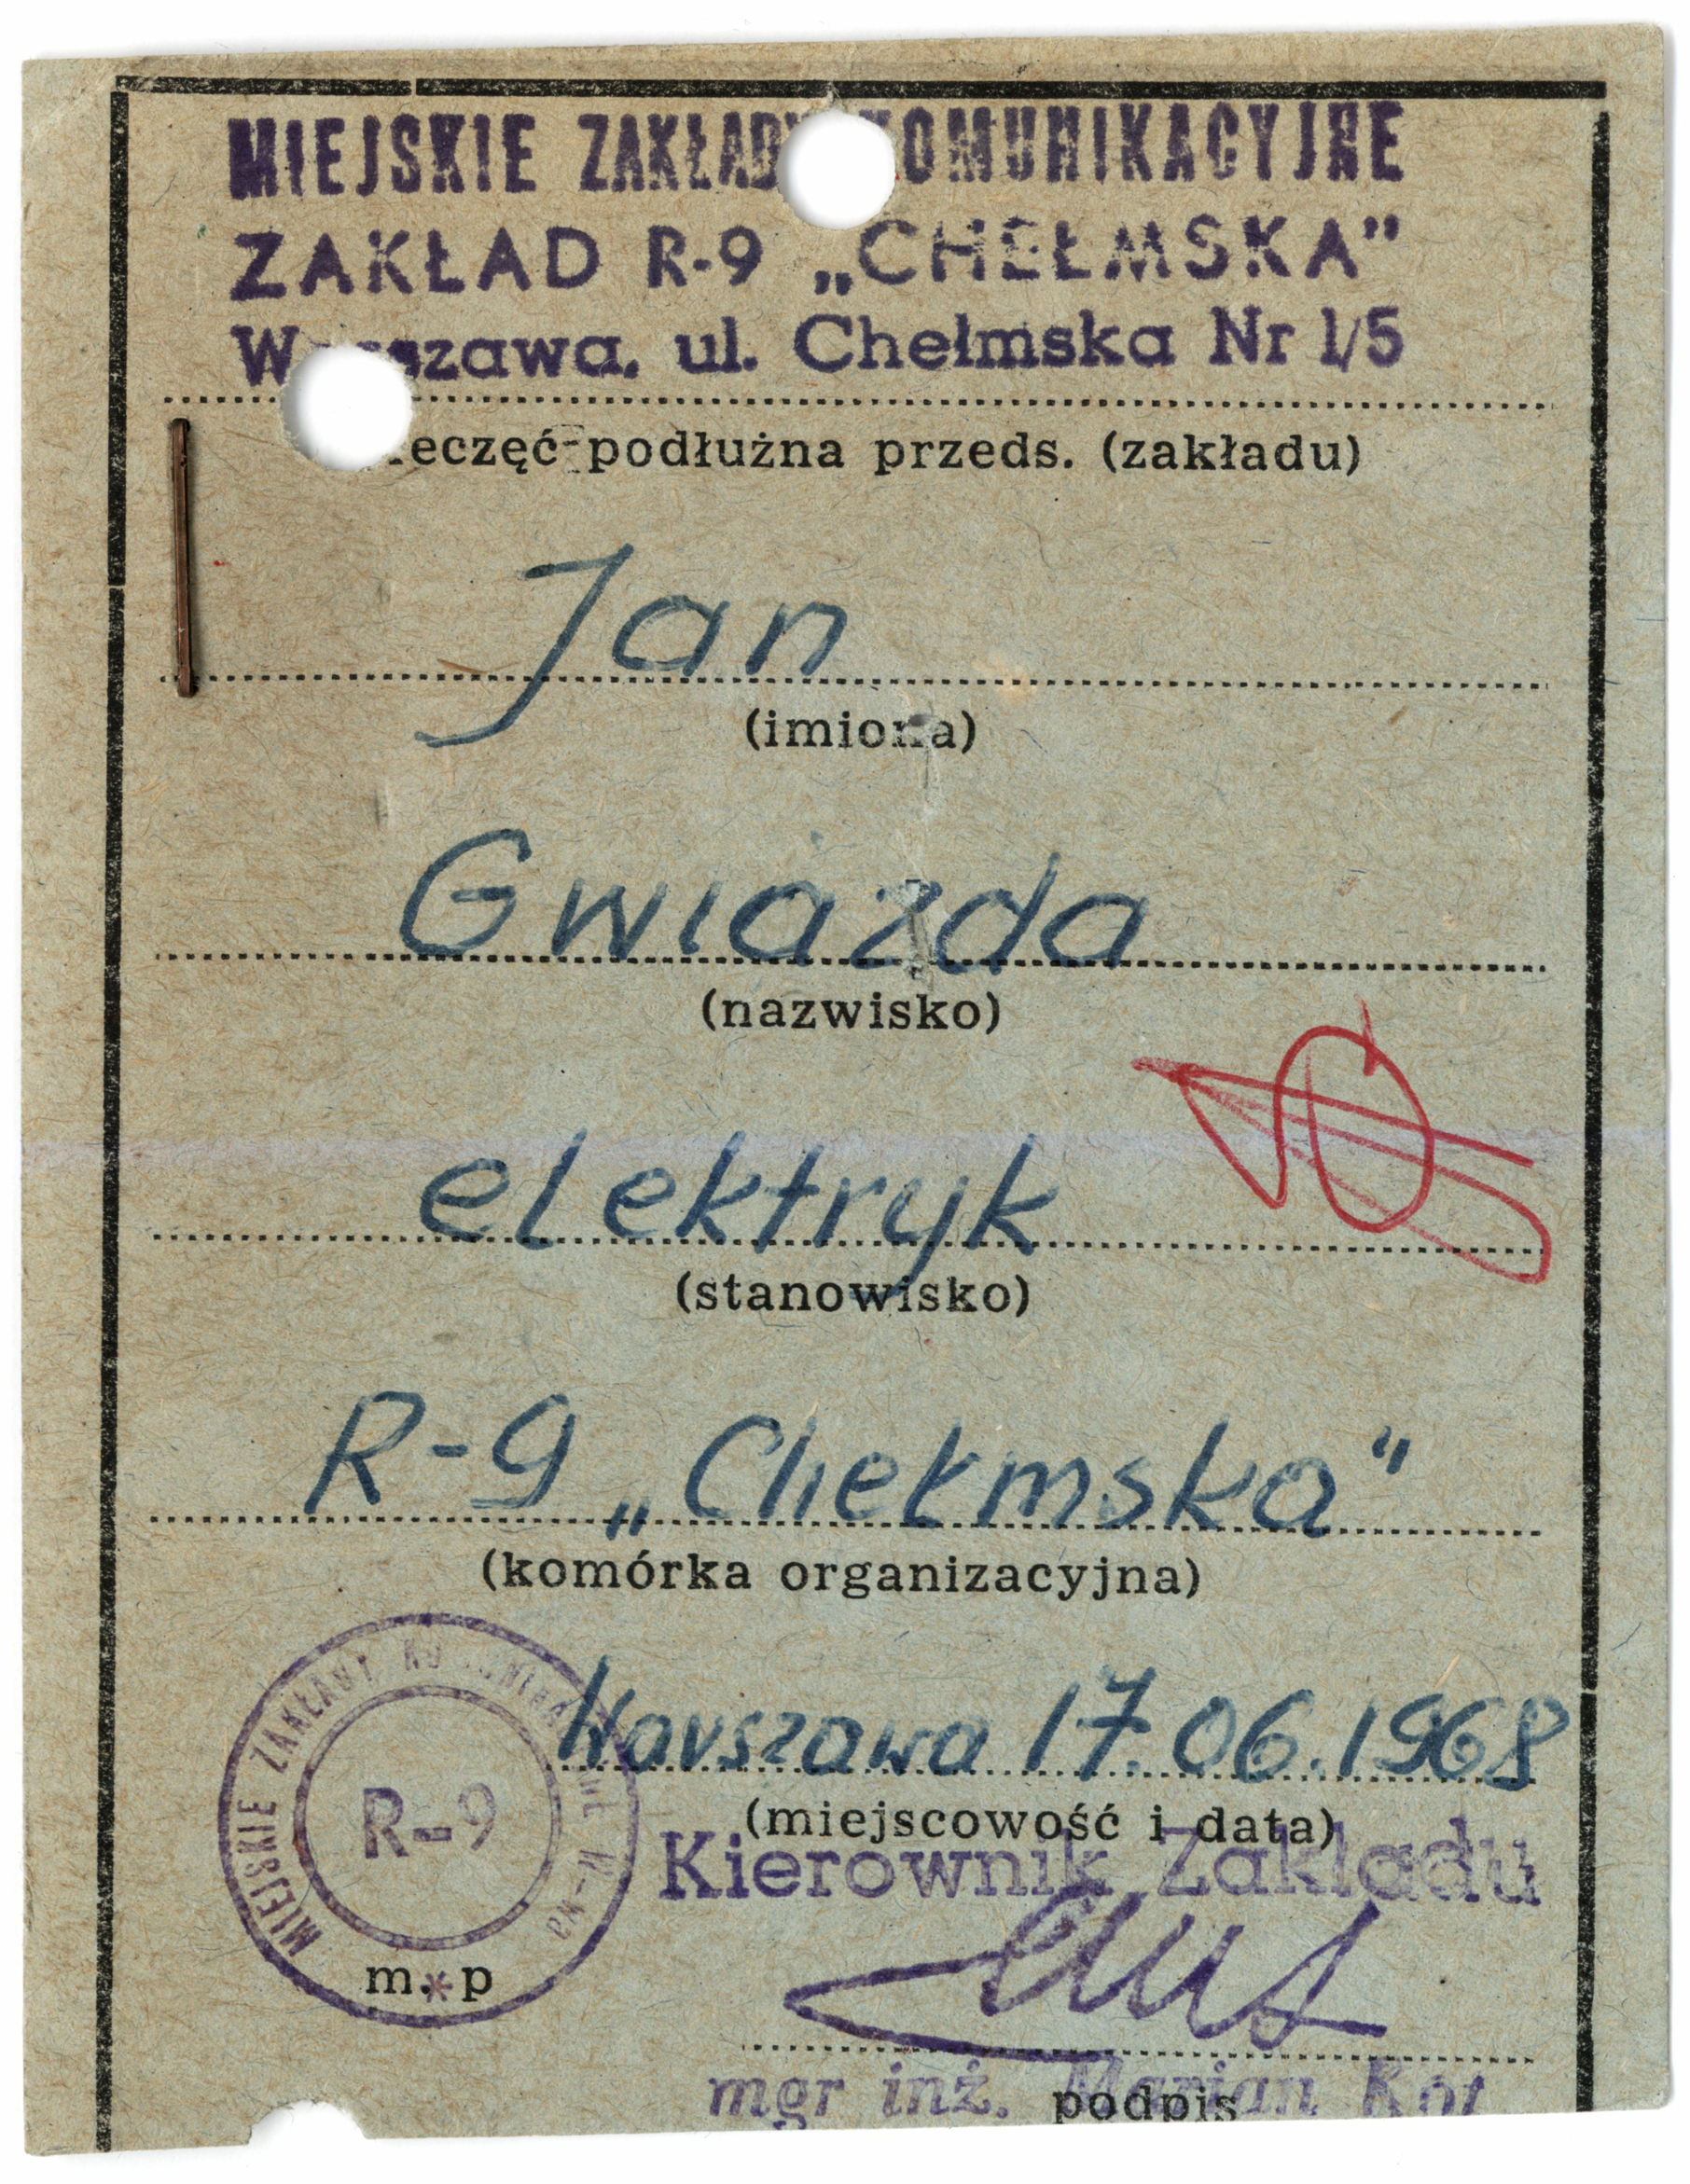 MIEJSKIE ZAKŁADY KOMUNIKACYJNE
ZAKŁAD R-9 „CHEŁMSKA”
Warszawa, ul. Chełmska Nr 1/5
ieczęć podłużna przeds. (zakładu)
Jan
(imiona)
Gwiazda
(nazwisko)
elektryk
(stanowisko)
R-9 „Chełmska”
(komórka organizacyjna)
MIEJSKIE ZAKŁADY
R-9
m. p
Warszawa 17.06.1968
(miejscowość i data)
Kierownik Zakładu
mgr inż. Marian Kot
podpis